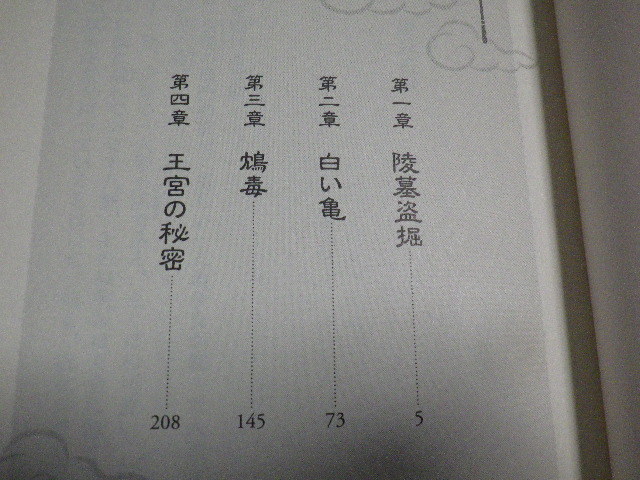 第一章 陵墓盗掘 5
第二章 白い亀 73
第三章 鴆毒 145
第四章 王宮の秘密 208